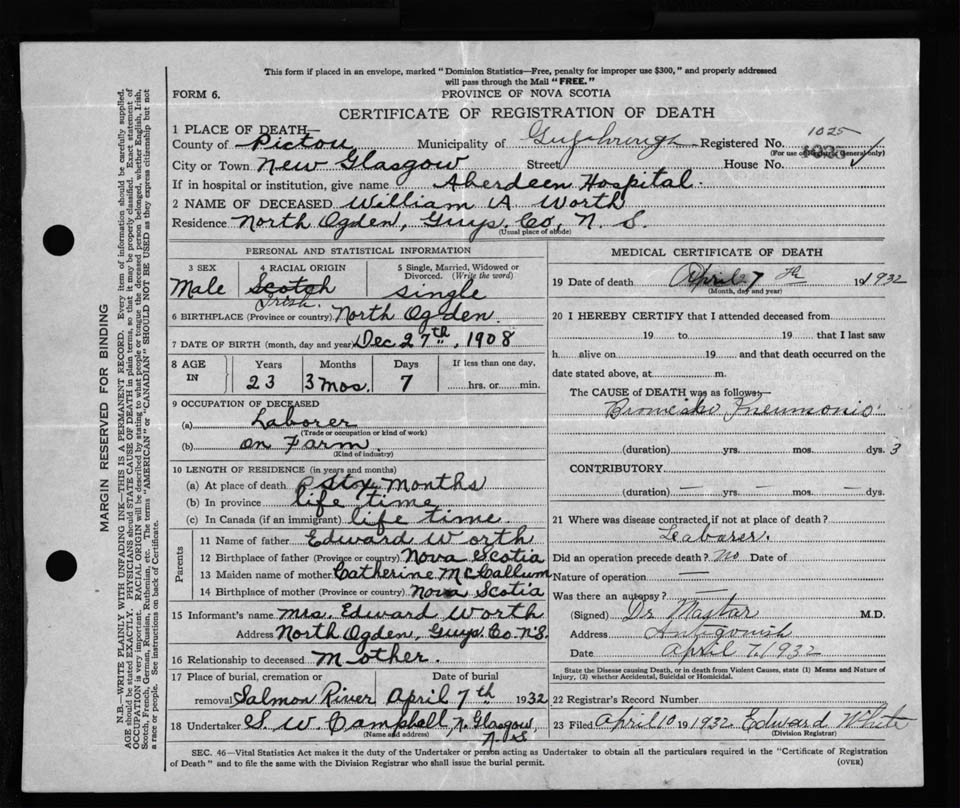 This form if placed in an envelope, marked "Dominion Statistics—Free, penalty for improper use $300," and properly addressed
will pass through the Mail "FREE."
FORM 6.
PROVINCE OF NOVA SCOTIA
CERTIFICATE OF REGISTRATION OF DEATH
1 PLACE OF DEATH—
County of Pictou Municipality of Guysborough Registered No. 1025
(For use of Registrar General only)
City or Town New Glasgow Street House No.
If in hospital or institution, give name Aberdeen Hospital.
2 NAME OF DECEASED William A Worth
Residence North Ogden, Guys. Co, N. S.
(Usual place of abode)
PERSONAL AND STATISTICAL INFORMATION
3 SEX Male
4 RACIAL ORIGIN Scotch
Irish.
5 Single, Married, Widowed or
Divorced. (Write the word)
single
6 BIRTHPLACE (Province or country) North Ogden.
7 DATE OF BIRTH (month, day and year) Dec 27th, 1908
8 AGE IN
Years Months Days If less than one day,
23 3 mos. 7 hrs. or min.
9 OCCUPATION OF DECEASED
(a) Laborer
(Trade or occupation or kind of work)
(b) on Farm
(Kind of industry)
10 LENGTH OF RESIDENCE (in years and months)
(a) At place of death months
(b) In province life time
(c) In Canada (if an immigrant) life time.
Parents
11 Name of father Edward Worth
12 Birthplace of father (Province or country) Nova Scotia
13 Maiden name of mother Catherine McCallum
14 Birthplace of mother (Province or country) Nova Scotia
15 Informant's name Mrs. Edward Worth
Address North Ogden, Guys. Co. N.S.
16 Relationship to deceased Mother.
17 Place of burial, cremation or Date of burial
removal Salmon River April 7th 1932
18 Undertaker S. W. Campbell, N. Glasgow,
(Name and address) N. S
MEDICAL CERTIFICATE OF DEATH
19 Date of death April 7th 19/1932
(Month, day and year)
20 I HEREBY CERTIFY that I attended deceased from
19 to 19 that I last saw
h alive on 19 and that death occurred on the
date stated above, at m.
The CAUSE OF DEATH was as follows—
Pneumonia
(duration) yrs. mos. dys. 3
CONTRIBUTORY
(duration) — yrs. — mos. — dys.
21 Where was disease contracted, if not at place of death?
Did an operation precede death? No Date of
Nature of operation —
Was there an autopsy? —
(Signed) Dr M.D.
Address Antigonish
Date April 7/1932
State the Disease causing Death, or in death from Violent Causes, state (1) Means and Nature of
Injury, (2) whether Accidental, Suicidal or Homicidal.
22 Registrar's Record Number
23 Filed April 10 19 1932 Edward White
(Division Registrar)
SEC. 46—Vital Statistics Act makes it the duty of the Undertaker or person acting as Undertaker to obtain all the particulars required in the "Certificate of Registration
of Death" and to file the same with the Division Registrar who shall issue the burial permit.
(OVER)
MARGIN RESERVED FOR BINDING
N.B.—WRITE PLAINLY WITH UNFADING INK—THIS IS A PERMANENT RECORD. Every item of information should be carefully supplied.
AGE should be stated EXACTLY. PHYSICIANS should STATE CAUSE OF DEATH in plain terms, so that it may be properly classified. Exact statement of
OCCUPATION is very important. RACIAL ORIGIN will be described by stating to what people or tongue the deceased person belonged, whether English, Irish,
Scotch, French, German, Russian, Ruthenian, etc. The terms "AMERICAN" or "CANADIAN" SHOULD NOT BE USED as they express citizenship but not
a race or people. See instructions on back of Certificate.